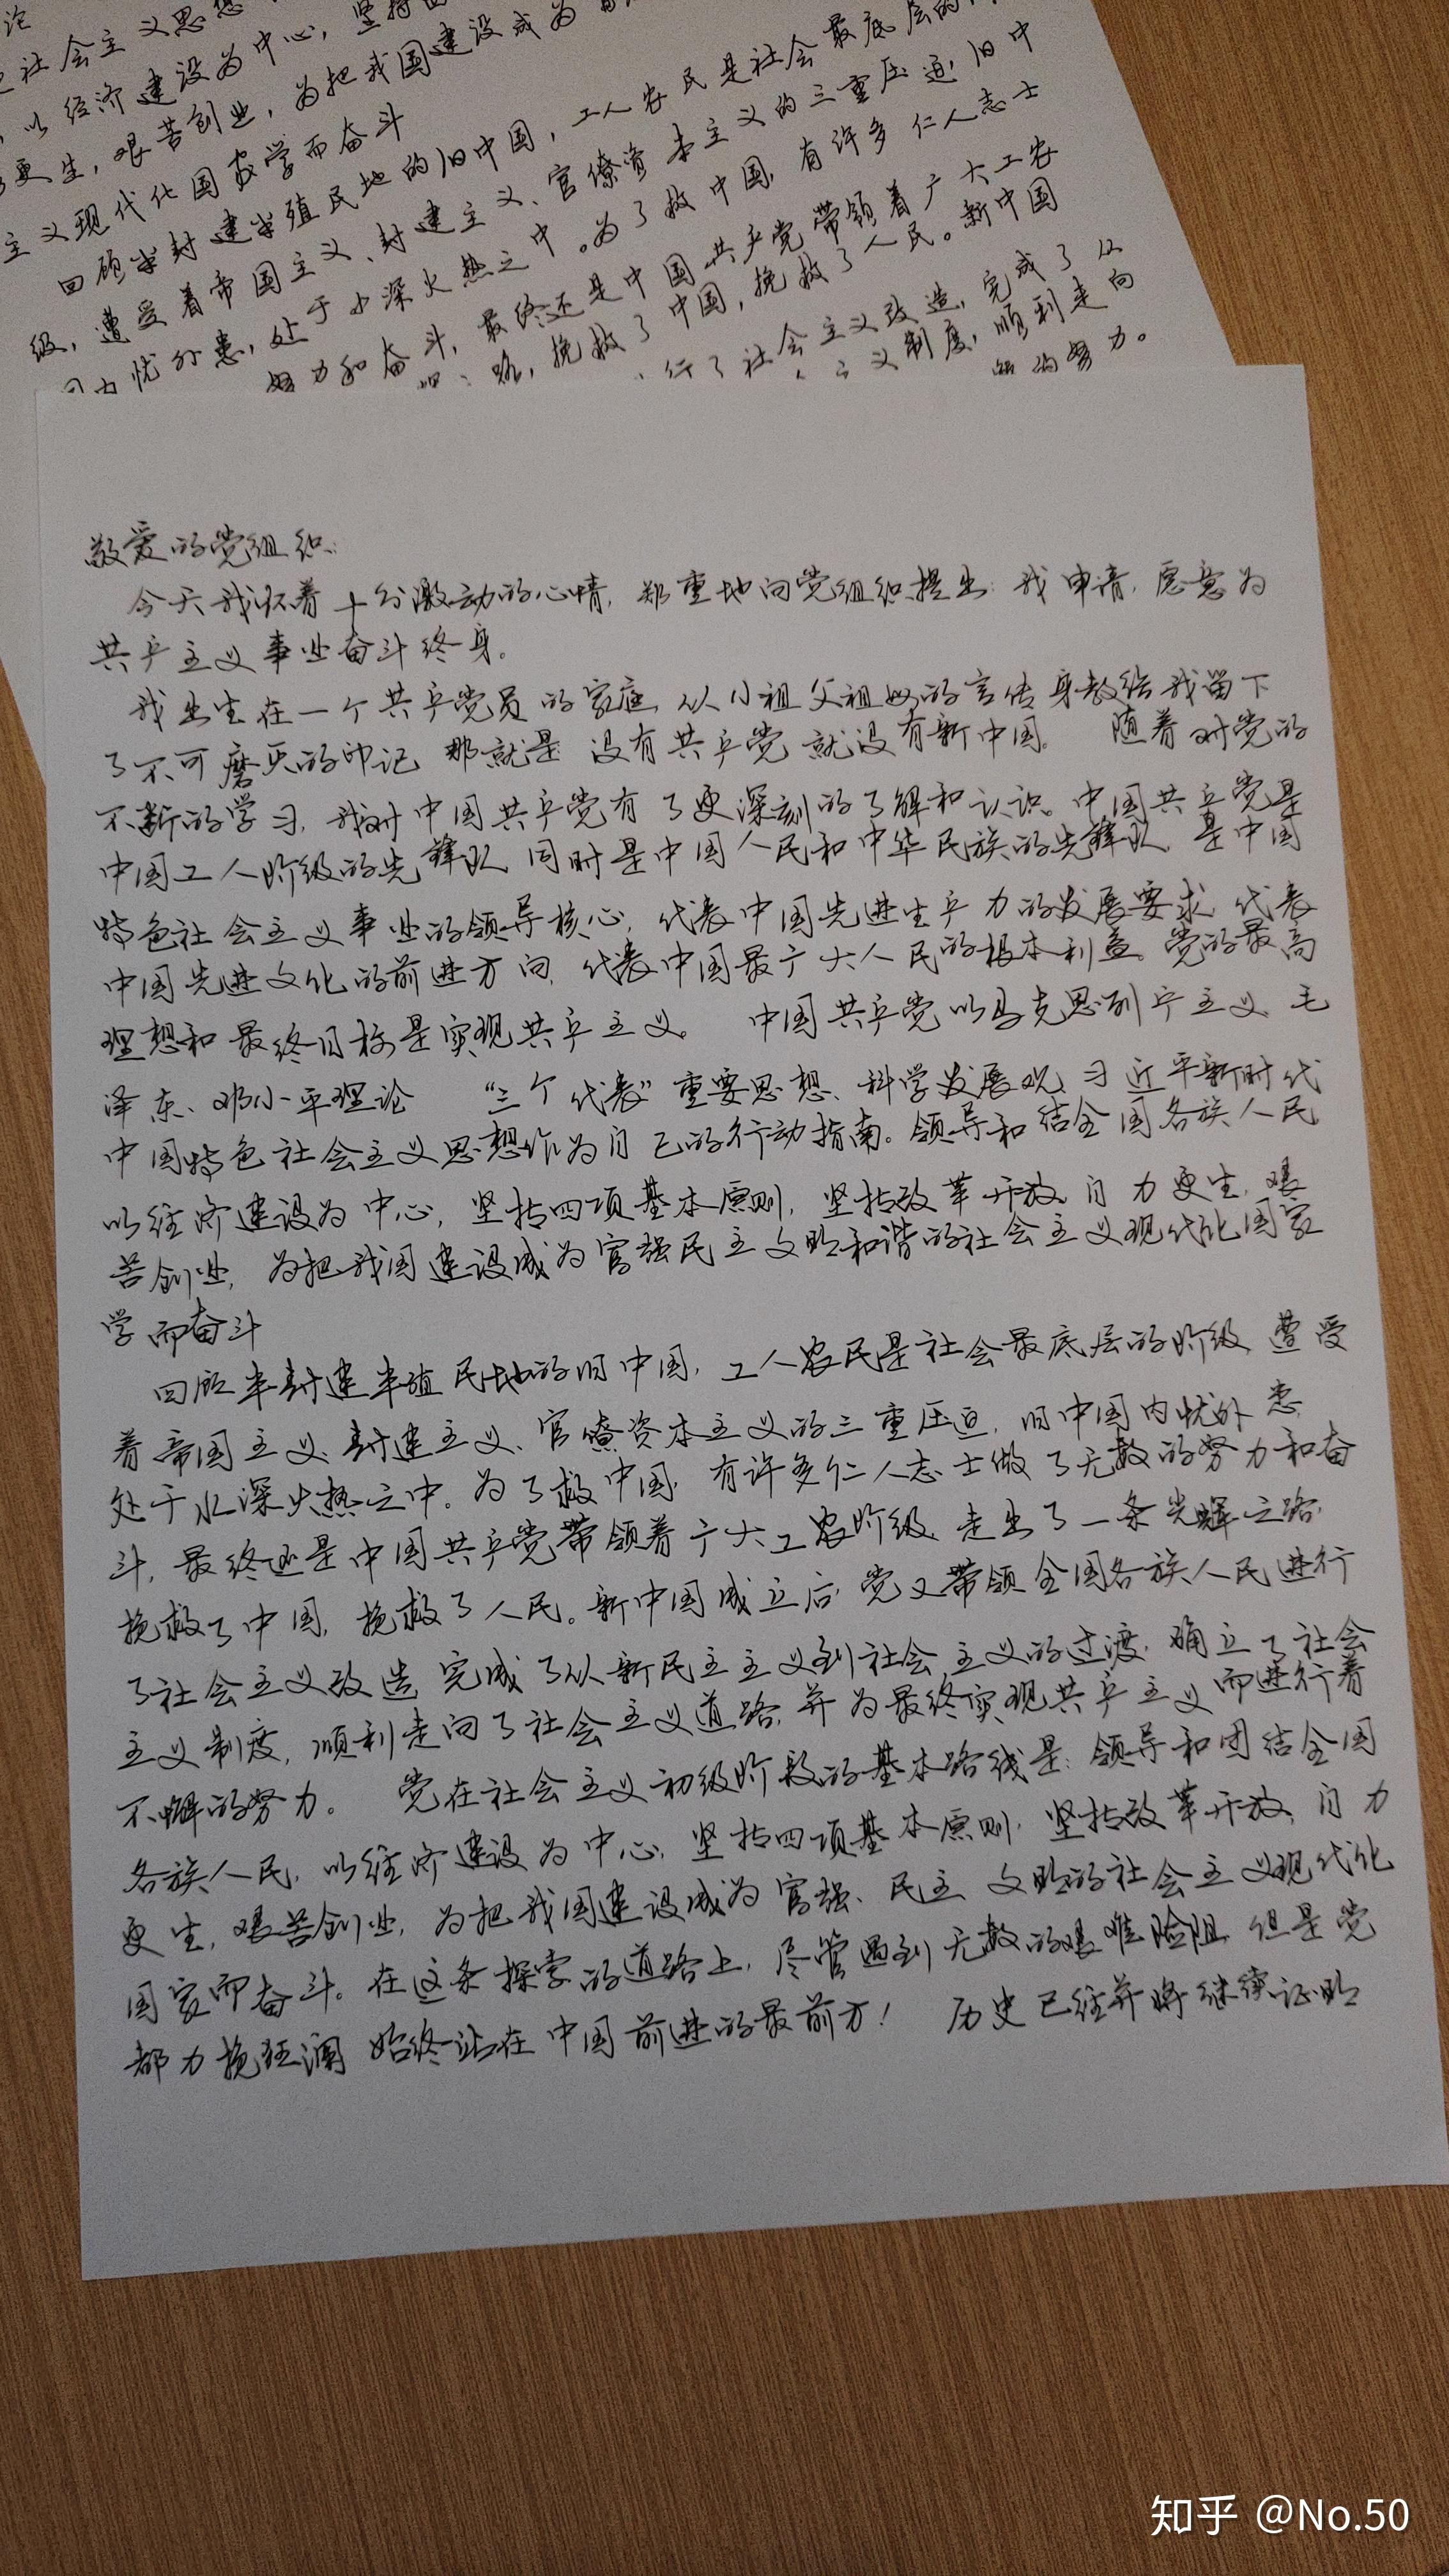 论
社会主义思想
以经济建设为中心，坚持
更生，艰苦创业，为把我国建设成为
主义现代化国家学而奋斗
回顾半封建半殖民地的旧中国，工人农民是社会最底层的
级，遭受着帝国主义、封建主义、官僚资本主义的三重压迫，旧中
国内忧外患，处于水深火热之中。为了救中国，有许多仁人志士
努力和奋斗，最终还是中国共产党带领着广大工农
路，挽救了中国，挽救了人民。新中国
行了社会主义改造，完成了从
主义制度，顺利走向
的努力。
敬爱的党组织：
今天我怀着十分激动的心情，郑重地向党组织提出：我申请，愿意为
共产主义事业奋斗终身。
我出生在一个共产党员的家庭，从小祖父祖母的言传身教给我留下
了不可磨灭的印记，那就是 没有共产党就没有新中国。 随着对党的
不断的学习，我对中国共产党有了更深刻的了解和认识。中国共产党是
中国工人阶级的先锋队，同时是中国人民和中华民族的先锋队，是中国
特色社会主义事业的领导核心，代表中国先进生产力的发展要求，代表
中国先进文化的前进方向，代表中国最广大人民的根本利益。党的最高
理想和最终目标是实现共产主义。 中国共产党以马克思列宁主义、毛
泽东、邓小平理论 “三个代表”重要思想、科学发展观、习近平新时代
中国特色社会主义思想作为自己的行动指南。领导和结全国各族人民
以经济建设为中心，坚持四项基本原则，坚持改革开放，自力更生，艰
苦创业，为把我国建设成为富强民主文明和谐的社会主义现代化国家
学而奋斗
回顾半封建半殖民地的旧中国，工人农民是社会最底层的阶级，遭受
着帝国主义、封建主义、官僚资本主义的三重压迫，旧中国内忧外患，
处于水深火热之中。为了救中国，有许多仁人志士做了无数的努力和奋
斗，最终还是中国共产党带领着广大工农阶级，走出了一条光辉之路，
挽救了中国，挽救了人民。新中国成立后，党又带领全国各族人民进行
了社会主义改造，完成了从新民主主义到社会主义的过渡，确立了社会
主义制度，顺利走向了社会主义道路，并为最终实现共产主义而进行着
不懈的努力。 党在社会主义初级阶段的基本路线是：领导和团结全国
各族人民，以经济建设为中心，坚持四项基本原则，坚持改革开放，自力
更生，艰苦创业，为把我国建设成为富强、民主、文明的社会主义现代化
国家而奋斗。在这条探索的道路上，尽管遇到无数的艰难险阻，但是党
都力挽狂澜 始终站在中国前进的最前方！ 历史已经并将继续证明
知乎 @No.50